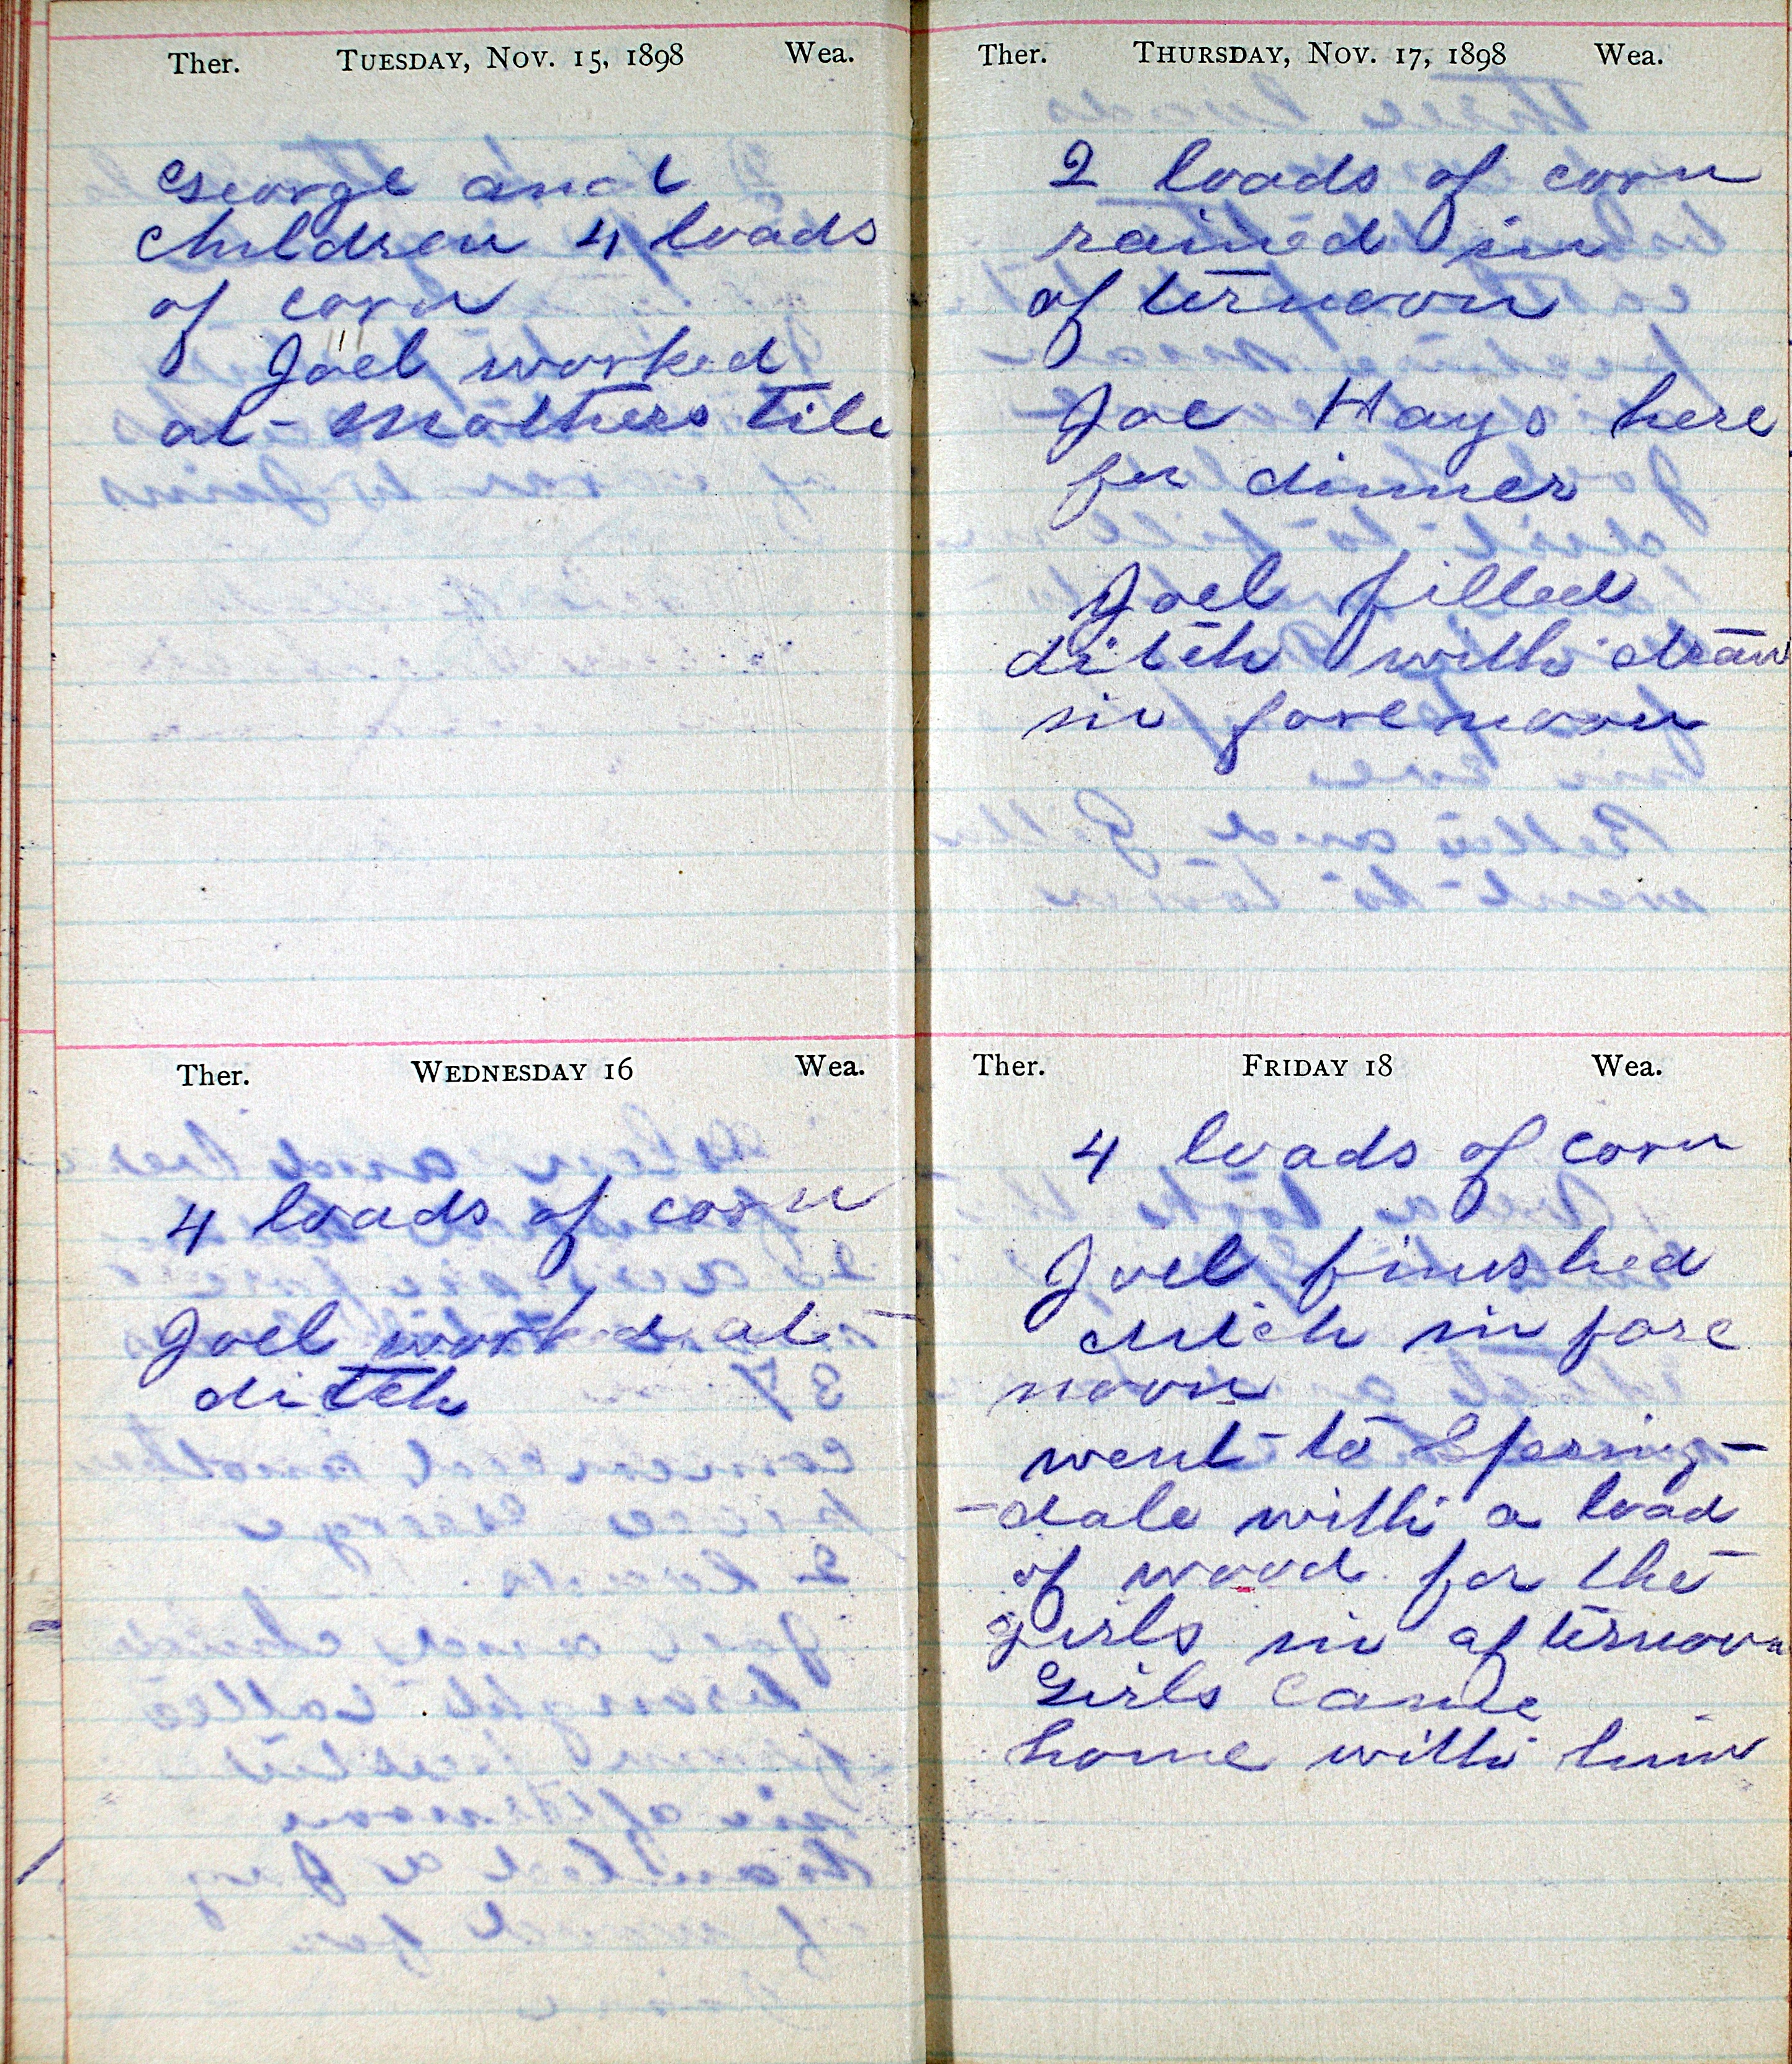 Ther. TUESDAY, NOV. 15, 1898 Wea.
George and
children 4 loads
of corn
Joel worked
at Mothers tile
Ther. WEDNESDAY 16 Wea.
4 loads of corn
Joel worked at
ditch
Ther. THURSDAY, NOV. 17, 1898 Wea.
2 loads of corn
rained in
afternoon
Joe Hays here
for dinner
Joel filled
ditch with straw
in forenoon
Ther. FRIDAY 18 Wea.
4 loads of corn
Joel finished
ditch in fore
noon
went to Spring-
-dale with a load
of wood for the
girls in afternoon
Girls came
home with him